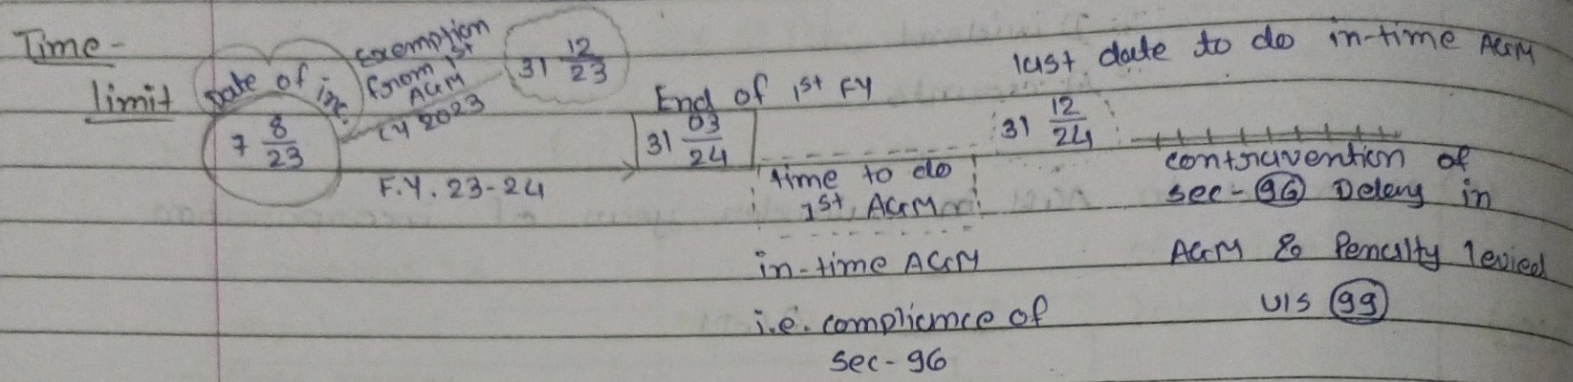 Time-
limit
Date of inc.
7 8/23
exemption
from 1st
AGM
CY 2023
31 12/23
F.Y. 23-24
End of 1st FY
31 03/24
time to do
1st AGM
in-time AGM
i.e. compliance of
Sec-96
last date to do in-time AGM
31 12/24
contravention of
sec-96 Delay in
AGM & Penalty levied
U/S 99